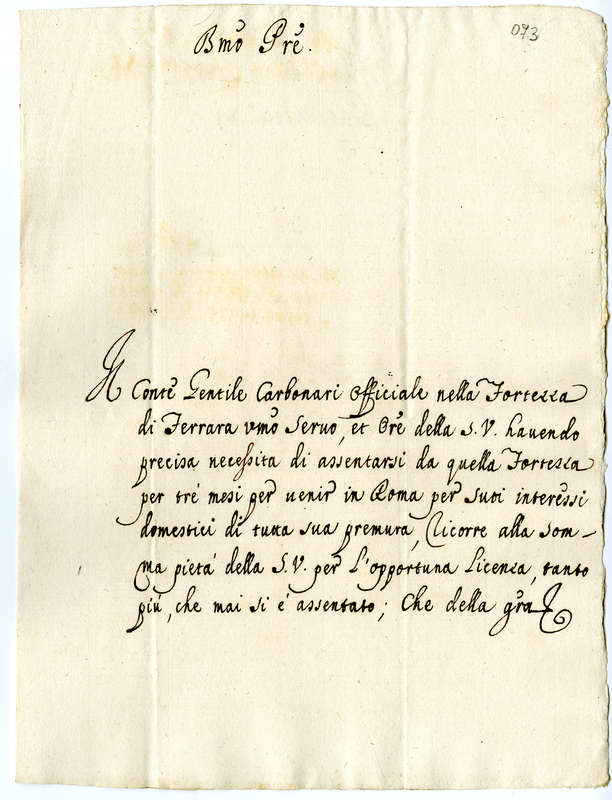 073
Bm̃o Prẽ.
Il Conte Gentile Carbonari Officiale nella Fortezza
di Ferrara vm̃o Seruo, et Orẽ della S.V. hauendo
precisa necessita di assentarsi da quella Fortezza
per tré mesi per uenir in Roma per suoi interessi
domestici di tutta sua premura, Ricorre alla Som-
ma pietá della S.V. per l'opportuna licenza, tanto
piú, che mai si é assentato; Che della grã